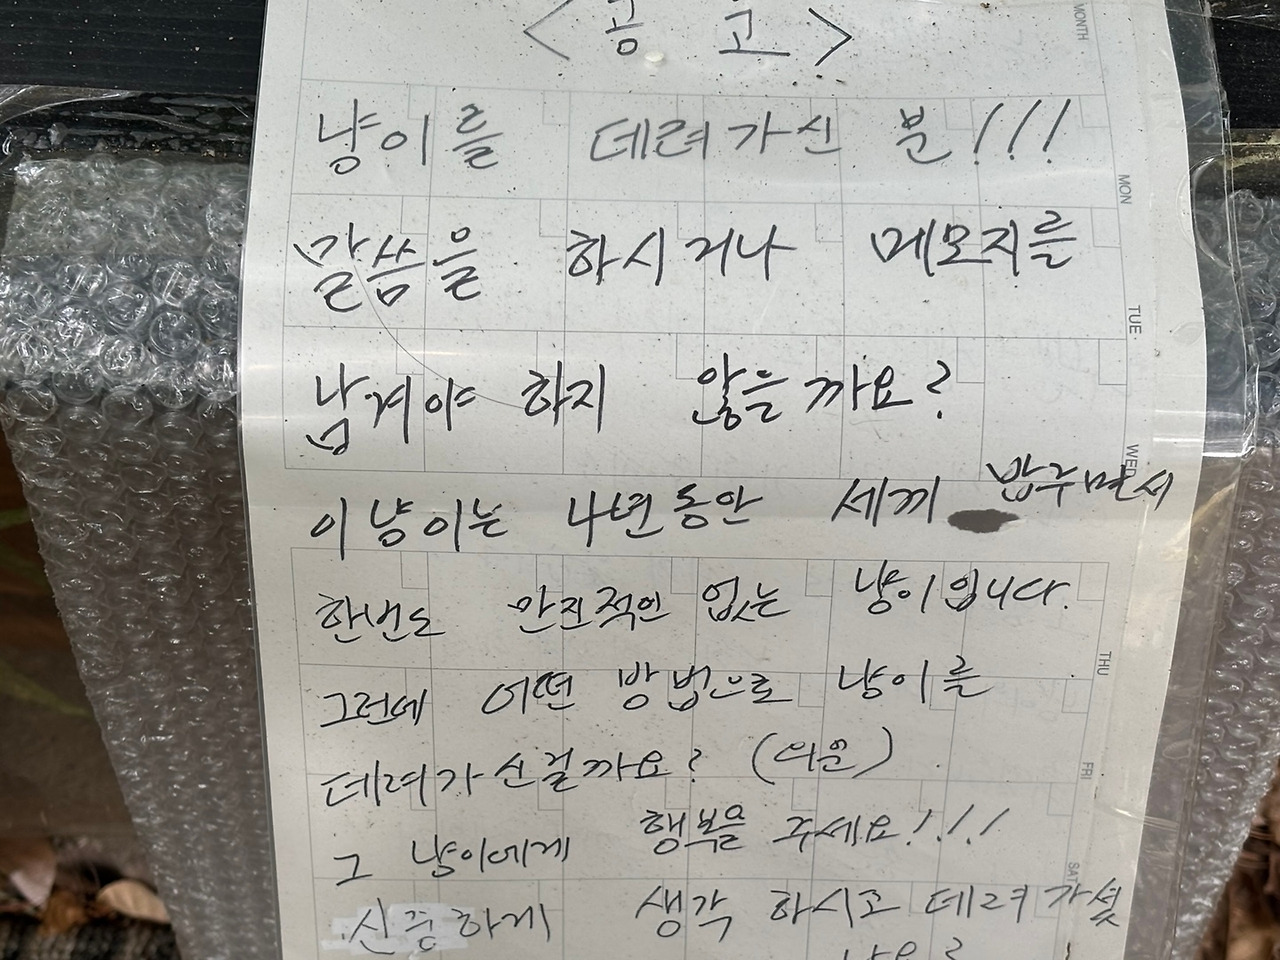 <공 고>
MONTH
냥이를 데려가신 분!!!
MON
말씀을 하시거나 메모지를
TUE
남겨야 하지 않을까요?
WED
이 냥이는 4년동안 세끼 밥주면서
한번도 만진적인 없는 냥이입니다.
THU
그런데 어떤 방법으로 냥이를
데려가신걸까요? (의문)
FRI
그 냥이에게 행복을 주세요!!!
SAT
신중하게 생각 하시고 데려가셨
나요?